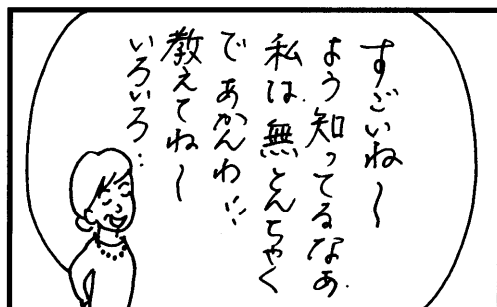 すごいね〜
よう知ってるなぁ
私は無とんちゃく
であかんわ…
教えてね〜
いろいろ…